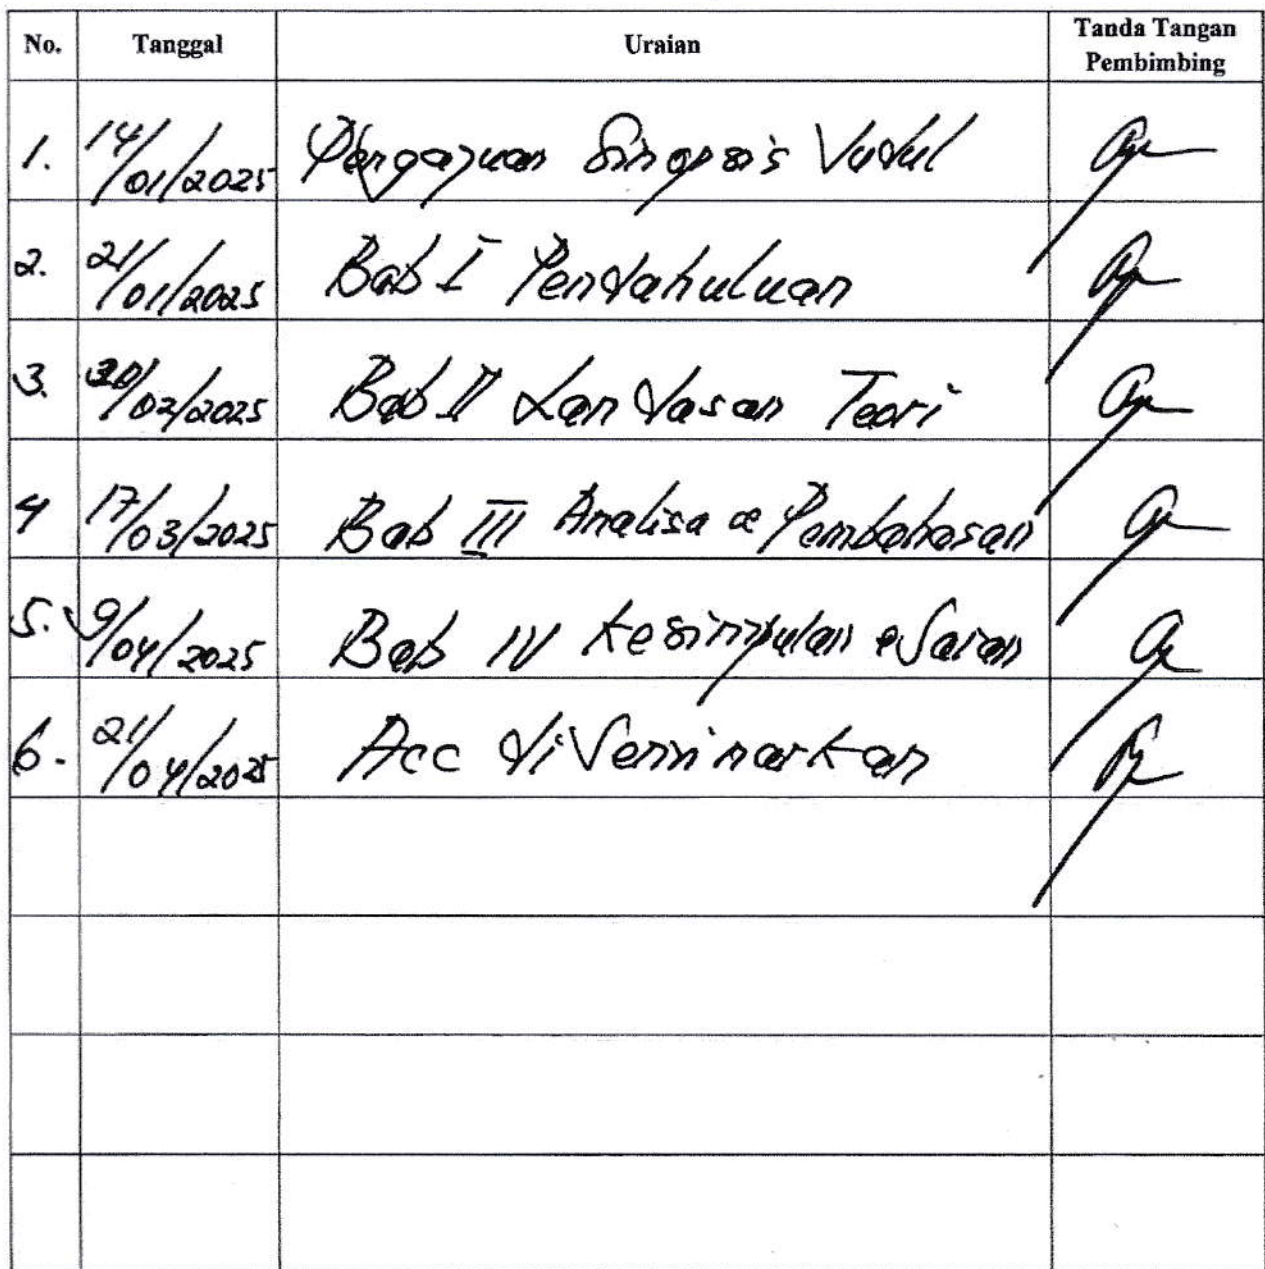 No. Tanggal Uraian Tanda Tangan Pembimbing
1. 14/01/2025 Pengajuan Sinopsis Judul
2. 21/01/2025 Bab I Pendahuluan
3. /02/2025 Bab II Landasan Teori
4 17/03/2025 Bab III Analisa & Pembahasan
5. 9/04/2025 Bab IV Kesimpulan & Saran
6. 21/04/2025 Acc diSeminarkan